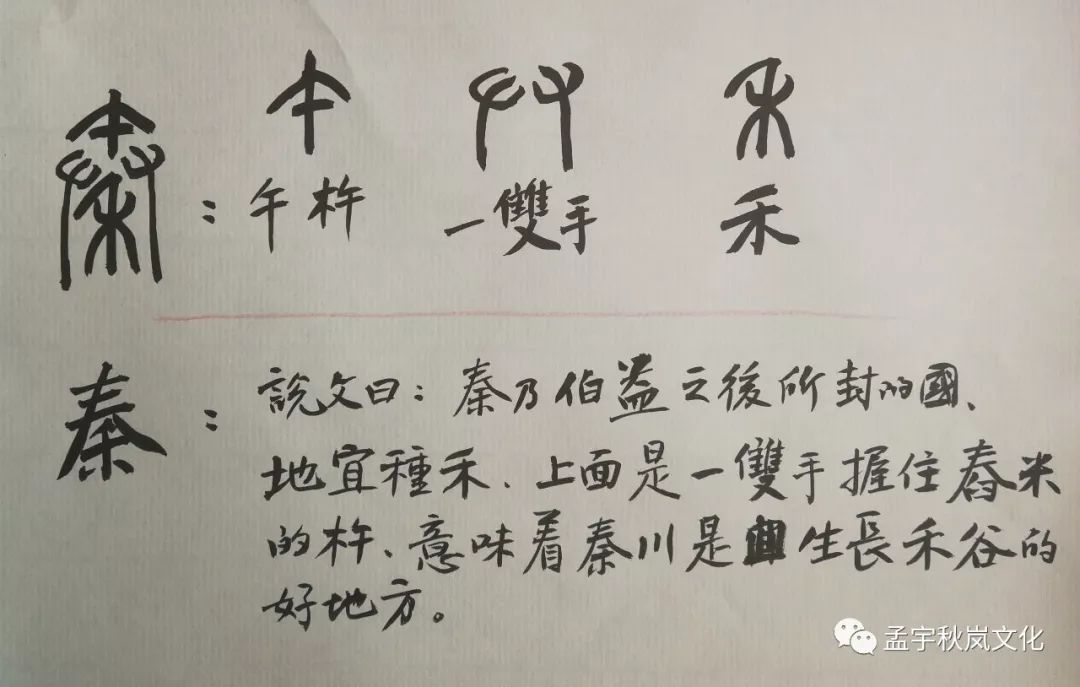 秦：午杵 一雙手 禾
秦：說文曰：秦乃伯益之後所封的國、
地宜種禾、上面是一雙手握住舂米
的杵、意味着秦川是生長禾谷的
好地方。
孟宇秋岚文化